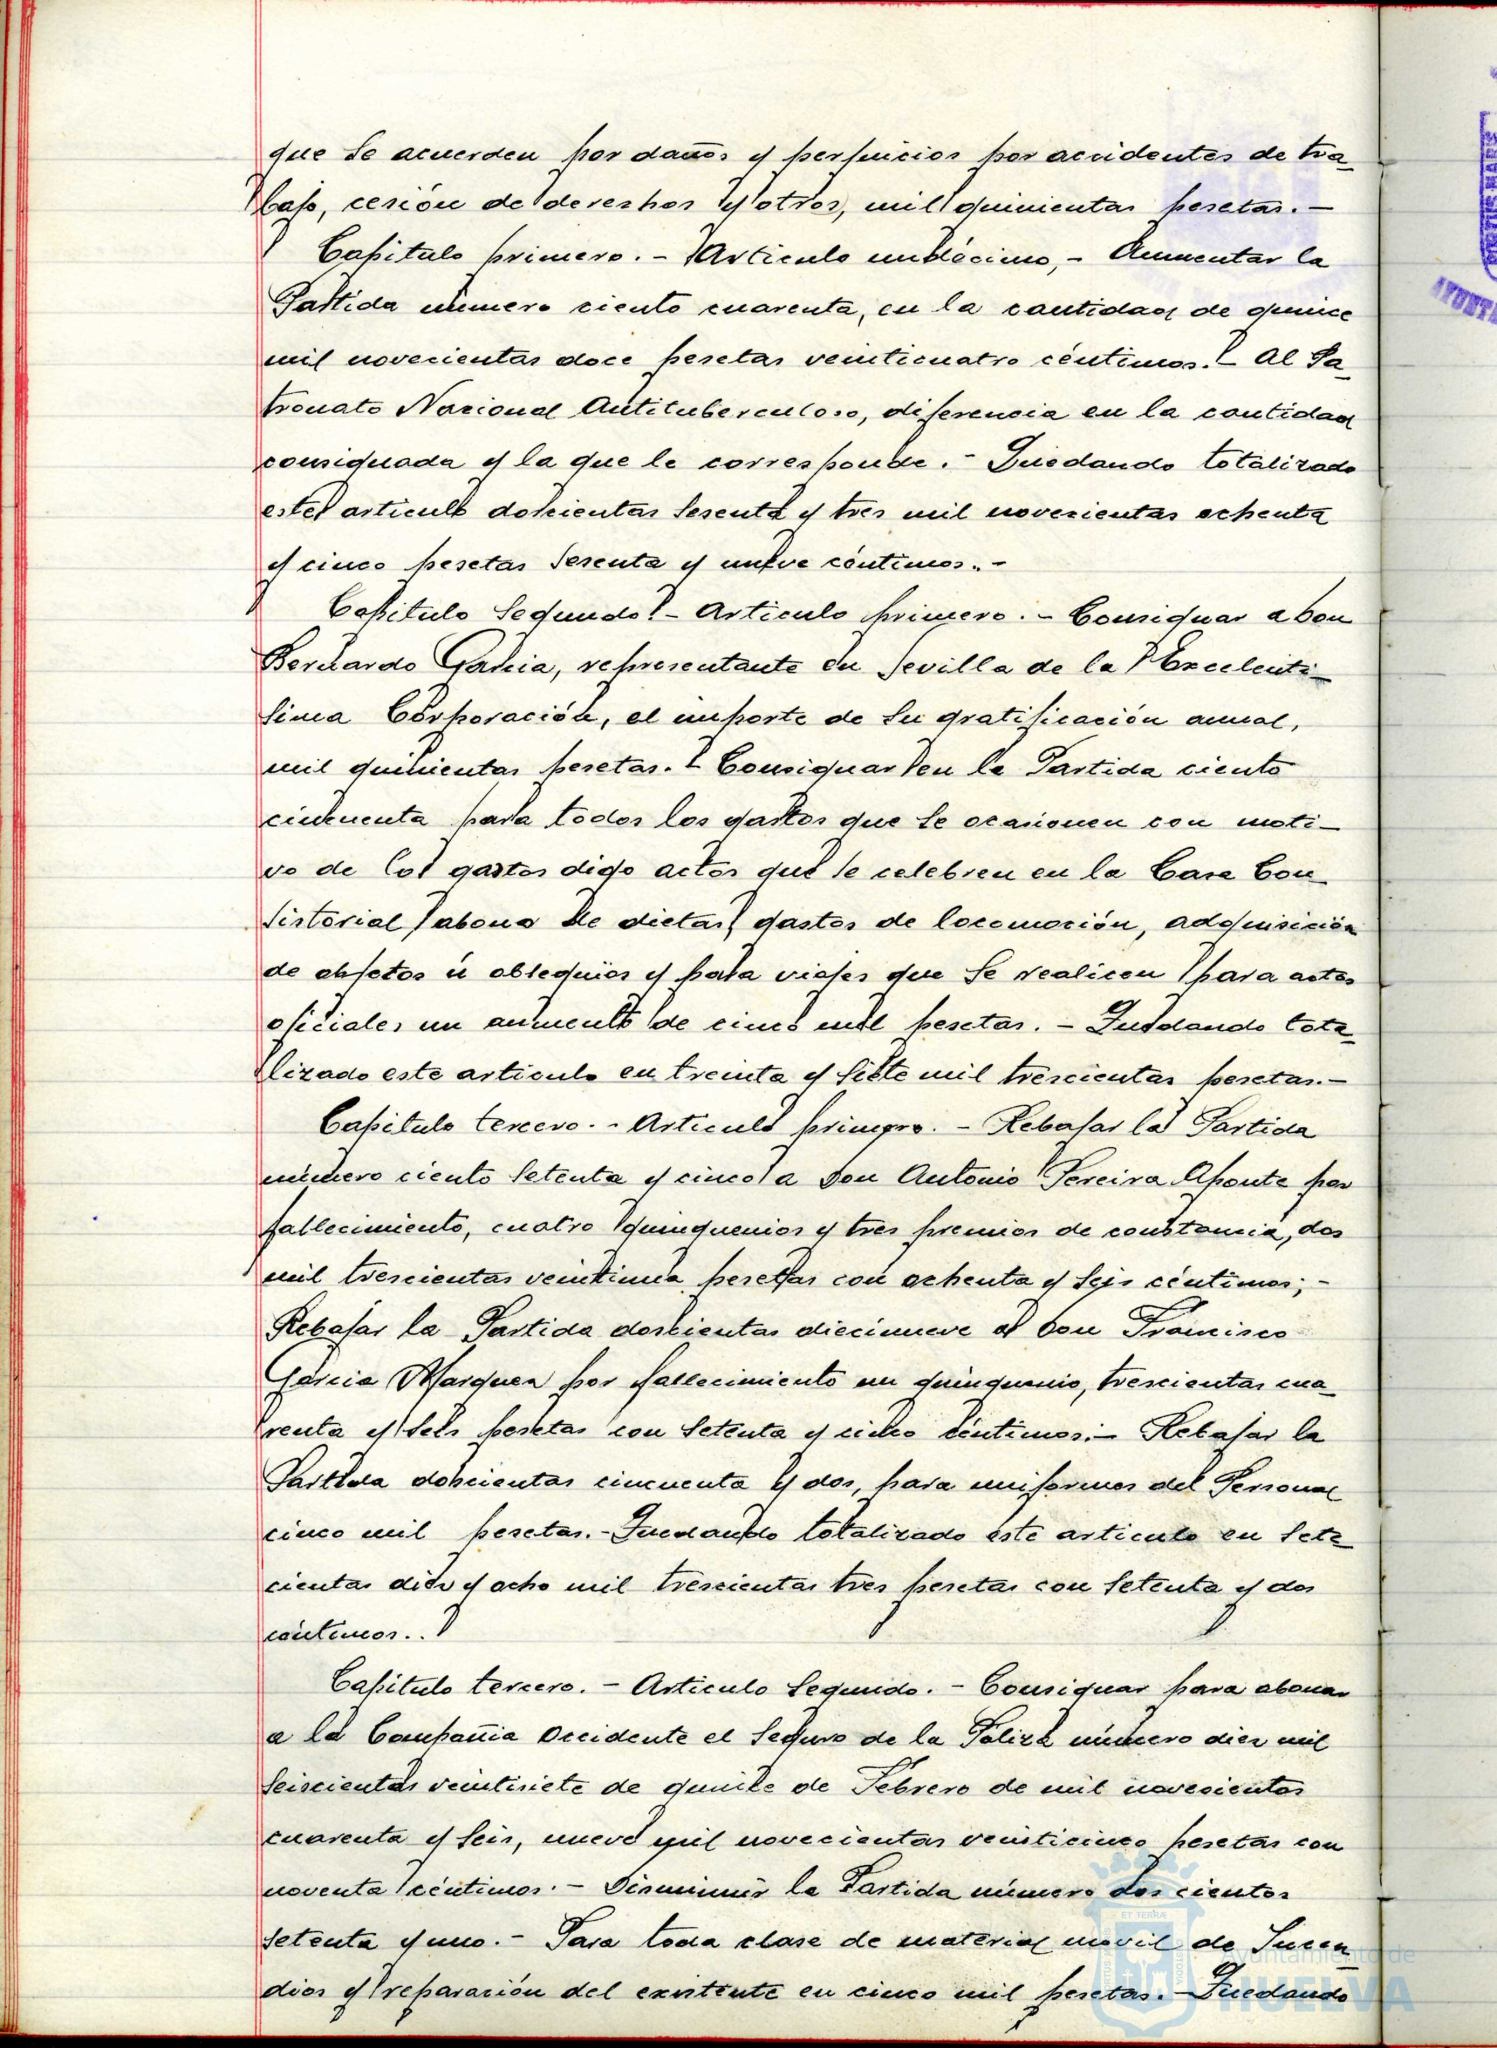 que se acuerden por daños y perjuicios por accidentes de tra-
bajo, cesión de derechos y otros, mil quinientas pesetas.-
Capitulo primero.- Articulo undécimo,- Aumentar la
Partida número ciento cuarenta, en la cantidad de quince
mil novecientas doce pesetas veinticuatro céntimos.- Al Pa-
tronato Nacional Antituberculoso, diferencia en la cantidad
consignada y la que le corresponde.- Quedando totalizado
este articulo doscientas sesenta y tres mil novecientas ochenta
y cinco pesetas sesenta y nueve céntimos..-
Capitulo Segundo.- Articulo primero.- Consignar a Don
Bernardo Garcia, representante en Sevilla de la Excelenti-
sima Corporación, el importe de su gratificación anual,
mil quinientas pesetas.- Consignar en la Partida ciento
cincuenta para todos los gastos que se ocasionen con moti-
vo de los gastos digo actos que se celebren en la Casa Con-
sistorial, abono de dietas, gastos de locomoción, adquisición
de objetos ú obsequios y para viajes que se realicen para actos
oficiales un aumento de cinco mil pesetas.- Quedando tota-
lizado este articulo en treinta y siete mil trescientas pesetas.-
Capitulo tercero.- Articulo primero.- Rebajar la Partida
número ciento setenta y cinco a Don Antonio Pereira Aponte por
fallecimiento, cuatro quinquenios y tres premios de constancia, dos
mil trescientas veintiuna pesetas con ochenta y seis céntimos;-
Rebajar la Partida doscientas diecinueve a Don Francisco
Garcia Marquez por fallecimiento un quinquenio, trescientas cua-
renta y seis pesetas con setenta y cinco céntimos:- Rebajar la
Partida doscientas cincuenta y dos, para uniformes del Personal
cinco mil pesetas.- Quedando totalizado este articulo en sete-
cientas diez y ocho mil trescientas tres pesetas con setenta y dos
céntimos..
Capitulo tercero.- Articulo Segundo.- Consignar para abonar
a la Compañia Occidente el Seguro de la Póliza número diez mil
seiscientas veintisiete de quince de Febrero de mil novecientos
cuarenta y seis, nueve mil novecientas veinticinco pesetas con
noventa céntimos.- Disminuir la Partida número dos cientos
setenta y uno.- Para toda clase de material movil de Incen-
dios y reparación del existente en cinco mil pesetas.- Quedando
Ayuntamiento de
HUELVA